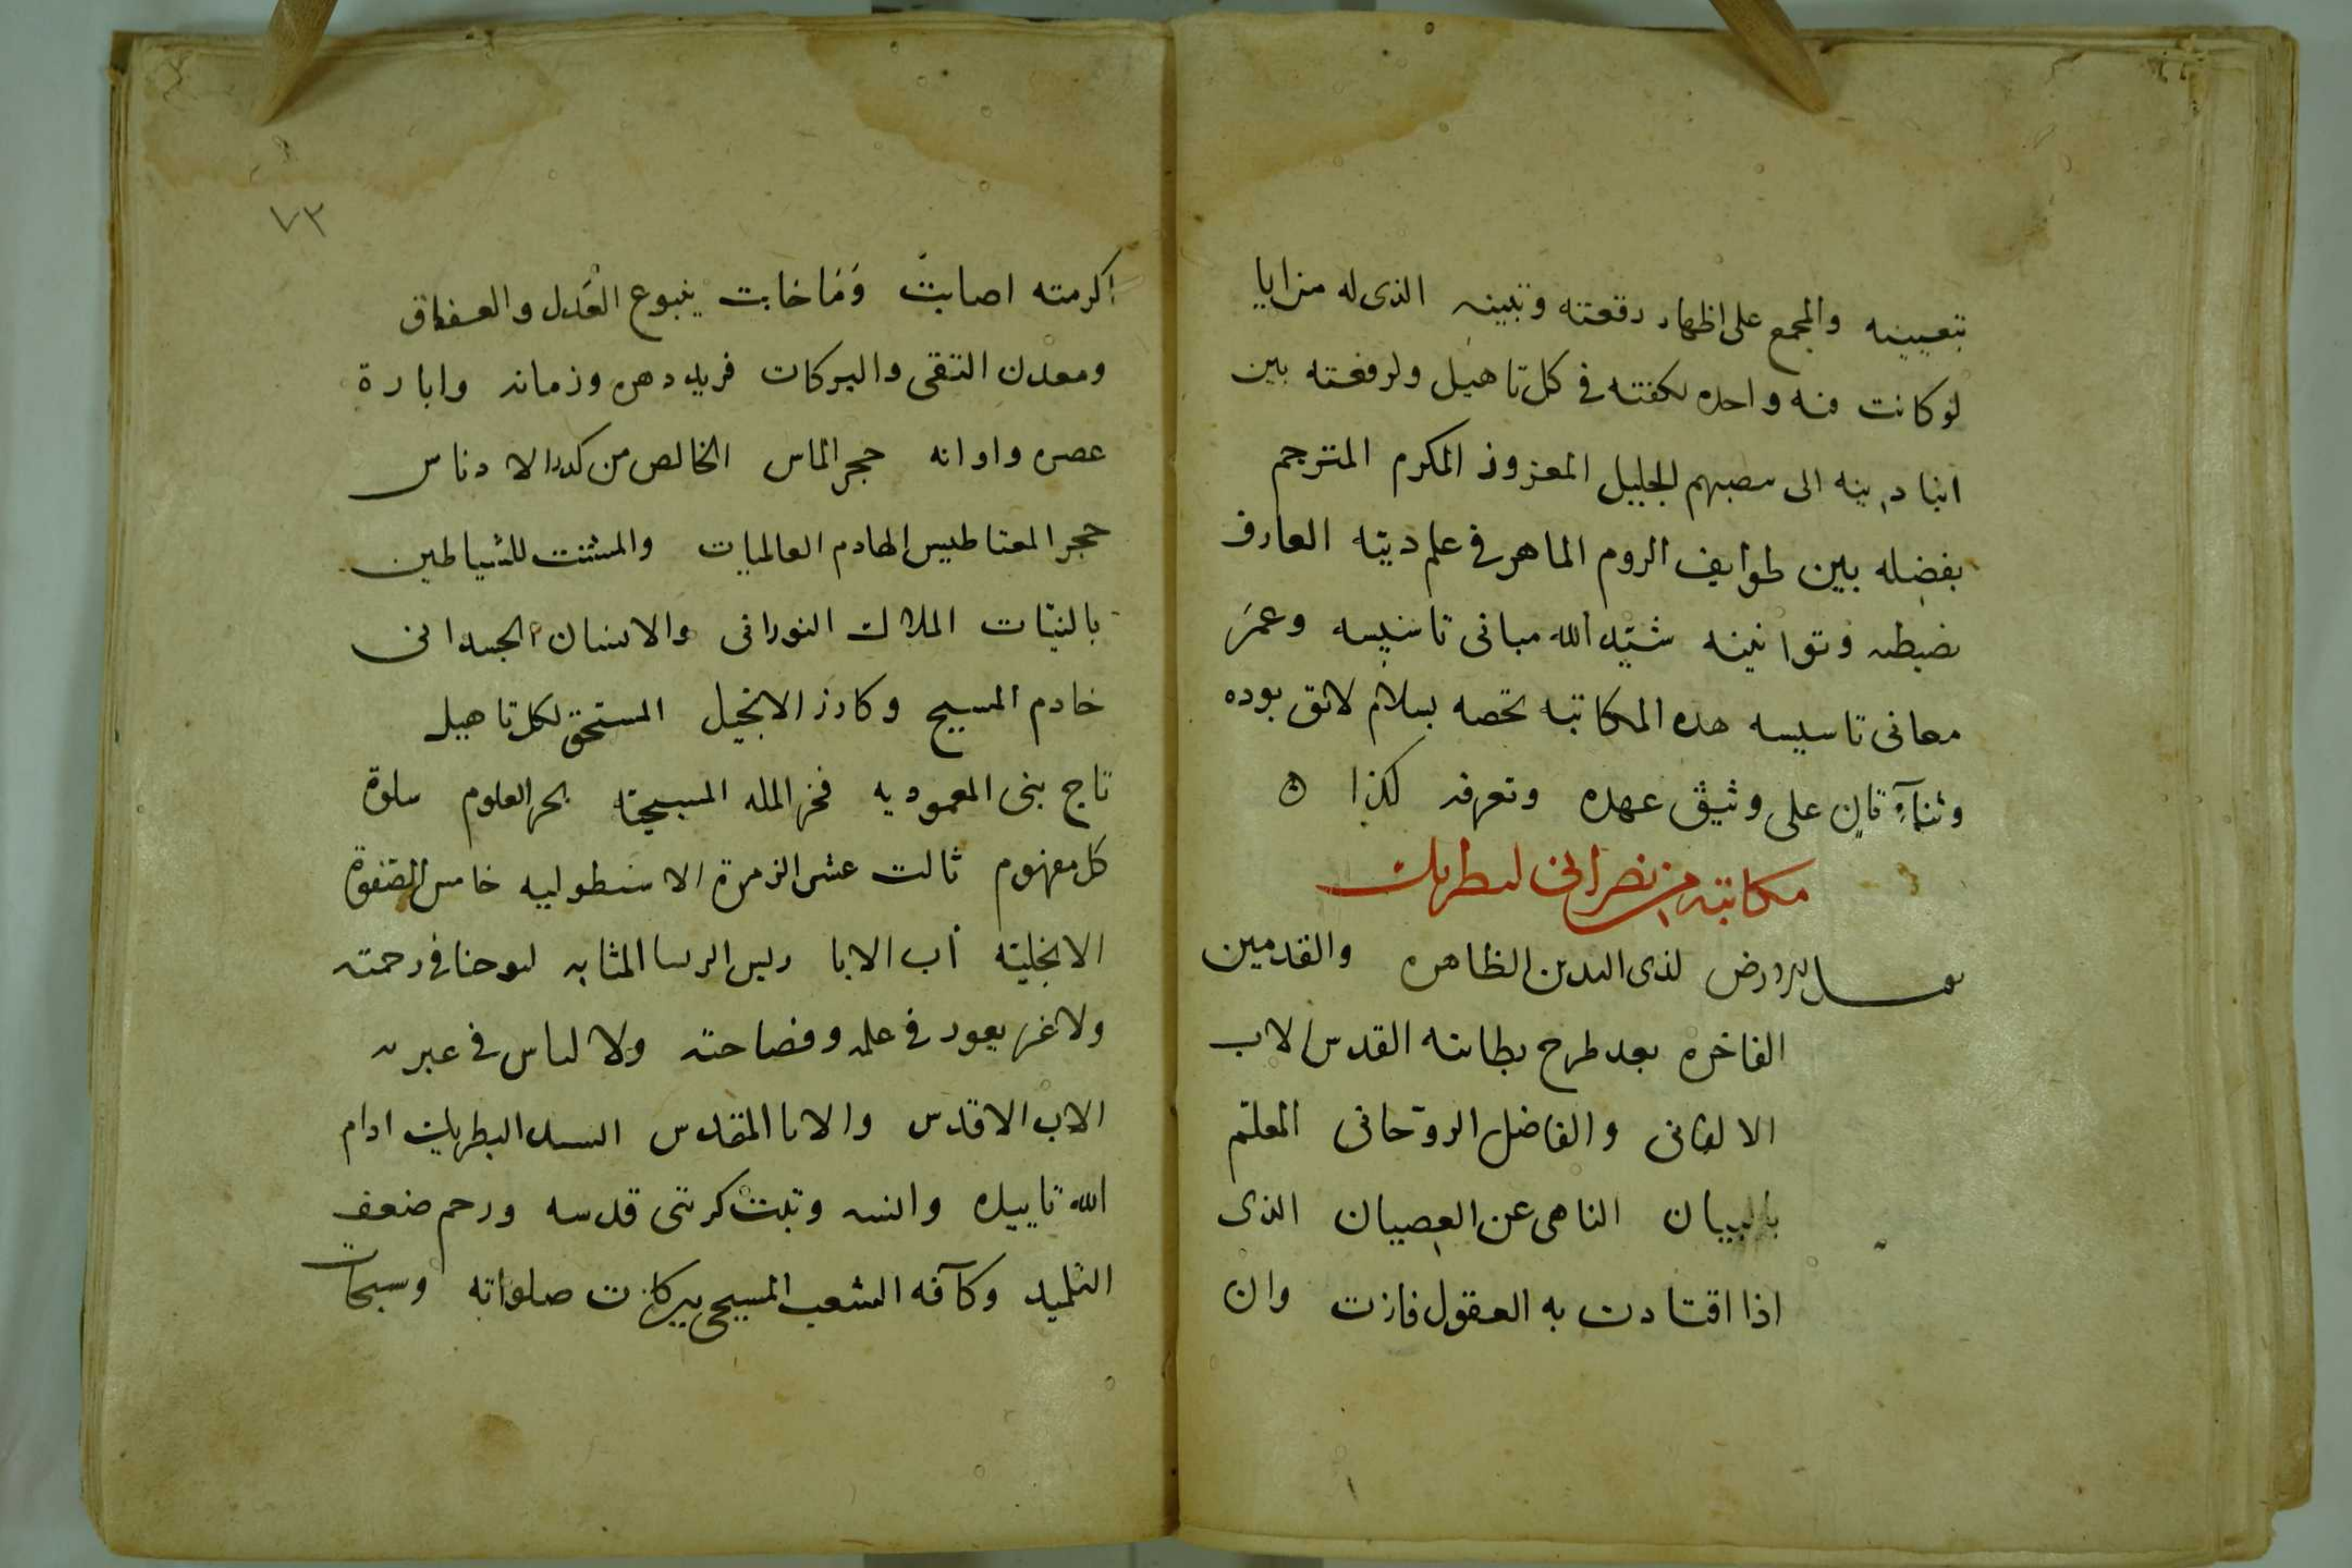 بتعيينه والمجمع على اظهار رفعته وتبينه الذى له مزايا
لوكانت منه واحده لكفته فى كل تاهيل ولرفعته بين
ابنا دينه الى منصبهم الجليل المعزوز المكرم المترجم
بفضله بين طوايف الروم الماهر فى علم ديته العارف
بضبطه وقوانينه شيّد الله مبانى تاسيسه وعمَر
معانى تاسيسه هذه المكاتبه تخصه بسلام لائق بوده
وثناءٍ قاين على وثيق عهده وتعرفه لكذا ه
مكاتبه من نصرانى لبطريك
لذى اليدين الظاهره والقدمين
الفاخره بعد طرح بطانته القدس الاب
والفاضل الروحانى المعلّم
بالبيان الناهى عن العصيان الذى
اذا اقتادت به العقول فازت وان
٧٣
اكرمته اصابت وَمَاخابت ينبوع العَدل والعفاف
ومعدن التقى والبركات فريد دهره وزمانه وابارة
عصره واوانه حجر الماس الخالص من كدر الادناس
حجر المغناطيس الهادم العالميات والمشتت للشياطين
بالنيّات الملاك النورانى والانسان الجسدانى
خادم المسيح وكارز الانجيل المستحق لكل تاهيل
تاج بنى المعموديه فخر المله المسيحيّه بحر العلوم سلوة
كل مفهوم ثالث عشر الزمرة الاسطوليه خامس الصفوة
الانجليّه أب الابا ريس الرسا المثابه ليوحنا فى رحمته
ولاغريعور فى علمه وفصاحته ولالناس فى عبرته
الاب الاقدس والابا المقدس السيد البطريك ادام
الله تاييده وانسه وثبت كرسى قدسه ورحم ضعف
التلميد وكآفه الشعب المسيحى ببركات صلواته وسبحات